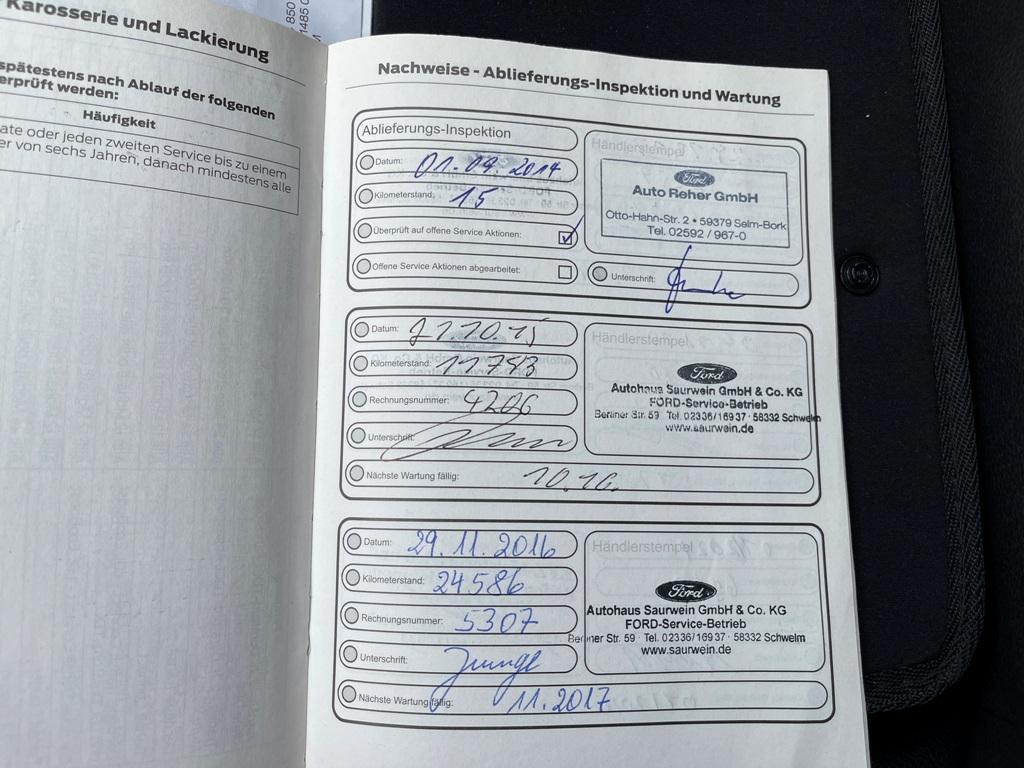 850
1485 0
Karosserie und Lackierung
spätestens nach Ablauf der folgenden
erprüft werden:
Häufigkeit
ate oder jeden zweiten Service bis zu einem
er von sechs Jahren, danach mindestens alle
Nachweise - Ablieferungs-Inspektion und Wartung
Ablieferungs-Inspektion
Datum: 01.09.2014
Kilometerstand: 15
Überprüft auf offene Service Aktionen:
Offene Service Aktionen abgearbeitet:
Händlerstempel
Ford
Auto Reher GmbH
Otto-Hahn-Str. 2 • 59379 Selm-Bork
Tel. 02592 / 967-0
Unterschrift:
Datum: 21.10.15
Kilometerstand: 11783
Rechnungsnummer: 4206
Unterschrift:
Nächste Wartung fällig: 10.16.
Händlerstempel
Ford
Autohaus Saurwein GmbH & Co. KG
FORD-Service-Betrieb
Berliner Str. 59 Tel. 02336/16937 · 58332 Schwelm
www.saurwein.de
Datum: 29.11.2016
Kilometerstand: 24586
Rechnungsnummer: 5307
Unterschrift:
Nächste Wartung fällig: 11.2017
Händlerstempel
Ford
Autohaus Saurwein GmbH & Co. KG
FORD-Service-Betrieb
Berliner Str. 59 · Tel. 02336/16937 · 58332 Schwelm
www.saurwein.de